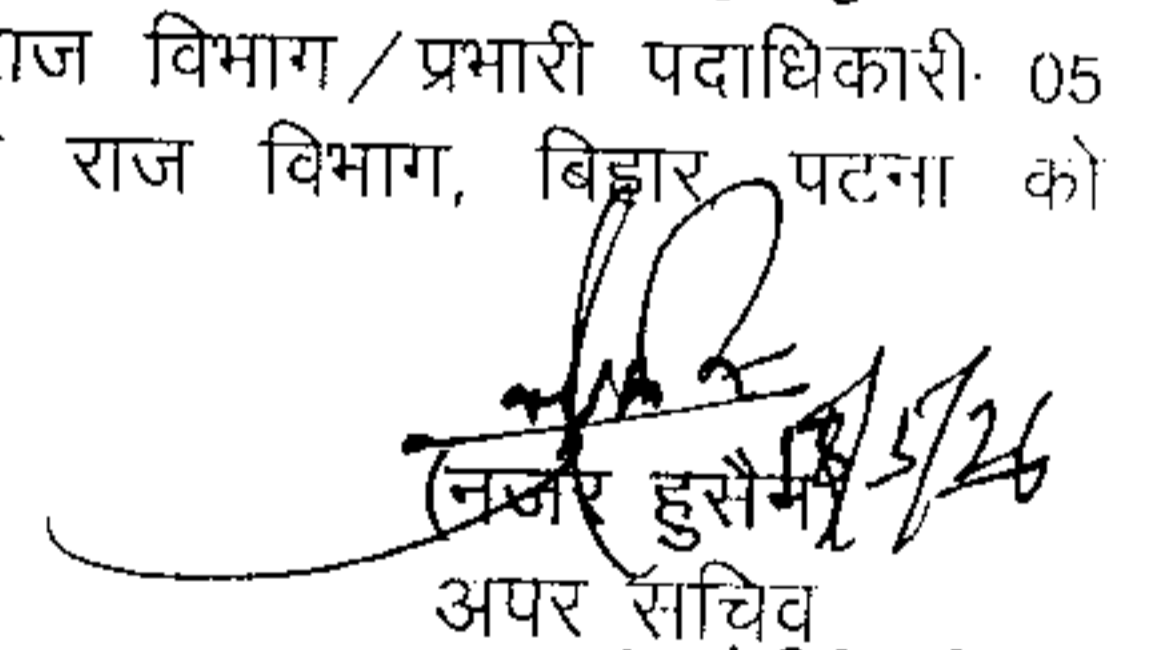 राज विभाग/प्रभारी पदाधिकारी- 05
राज विभाग, बिहार पटना को
18/5/26
(नजर हुसैन)
अपर सचिव